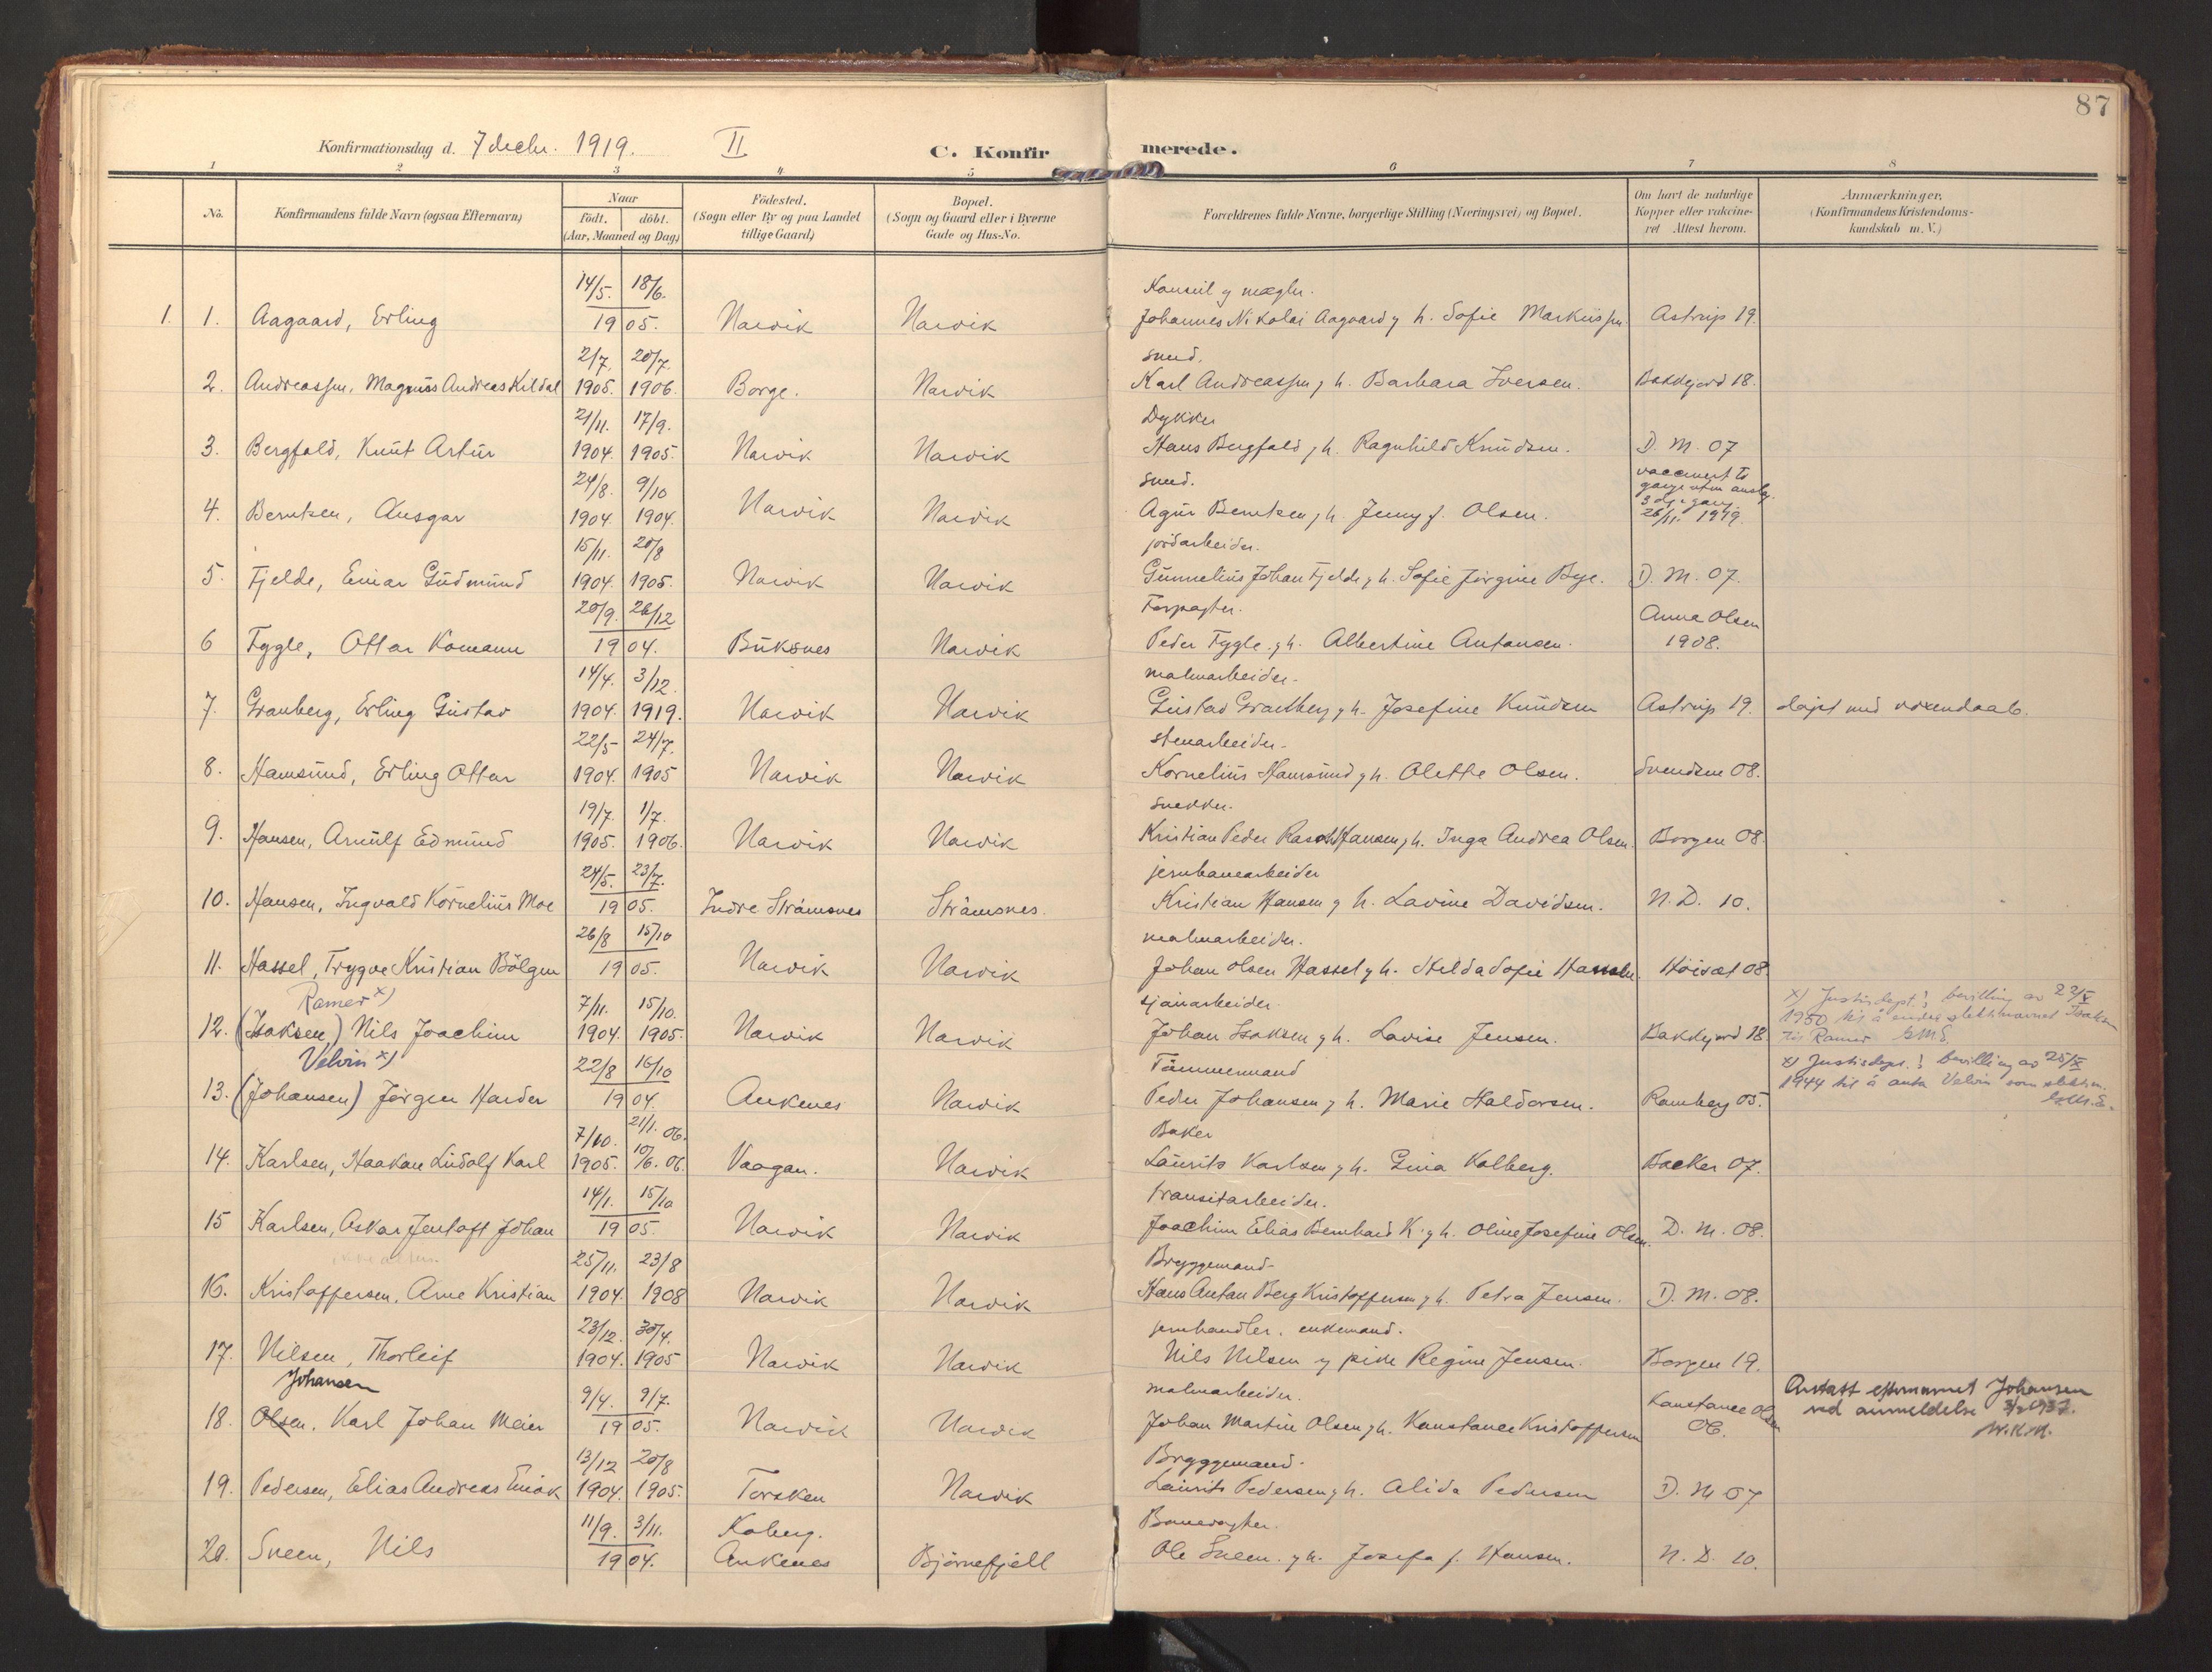 87
Konfirmationsdag d. 7 decbr. 1919. II C. Konfirmerede.
1 2 3 4 5 6 7 8
No. Konfirmandens fulde Navn (ogsaa Efternavn) Naar Födt. döbt. (Aar, Maaned og Dag) Födested. (Sogn eller By og paa Landet tillige Gaard) Bopæl. (Sogn og Gaard eller i Byerne Gade og Hus-No. Forældrenes fulde Navne, borgerlige Stilling (Næringsvei) og Bopæl. Om havt de naturlige Kopper eller vakcineret Attest herom. Anmærkninger. (Konfirmandens Kristendomskundskab m. V.)
14/5. 18/6. Konsul og mægler.
1. 1. Aagaard, Erling 1905. Narvik Narvik Johannes Nikolai Aagaard og h. Sofie Markussen Astrup 19.
2/7. 20/7. smed.
2. Andreassen, Magnus Andreas Kildal 1905. 1906. Borge. Narvik Karl Andreassen og h. Barbara Iversen. Bakkejord 18.
21/11. 17/9. Dykker
3. Bergfald, Knut Artur 1904. 1905. Narvik Narvik Hans Bergfald og h. Ragnhild Knudsen. D. M. 07
24/8. 9/10 smed. vaccinert to gange uten anslag 3dje gang
4. Berntsen, Ansgar 1904. 1904. Narvik Narvik Agur Berntsen og h. Jenny f. Olsen. 26/11. 1919.
15/11. 20/8 jordarbeider.
5. Fjelde, Einar Gudmund 1904. 1905. Narvik Narvik Gunnelius Johan Fjelde og h. Sofie Jörgine Bye. D. M. 07.
20/9. 26/12 Forpagter. Anna Olsen
6 Fygle, Ottar Komann 1904. Buksnes Narvik Peder Fygle og h. Albertine Antonsen. 1908.
14/4. 3/12. malmarbeider.
7. Granberg, Erling Gustav 1904. 1919. Narvik Narvik Gustav Granberg og h. Josefine Knudsen Astrup 19. döpt med voxendaab.
22/5 24/7. stenarbeider.
8. Hamsund, Erling Ottar 1904. 1905 Narvik Narvik Kornelius Hamsund og h. Olette Olsen. Svendsen 08.
19/7. 1/7. snekker.
9. Hansen, Arnulf Edmund 1905. 1906. Narvik Narvik Kristian Peder Rasch Hansen og h. Inga Andrea Olsen. Borgen 08.
24/5. 23/7. jernbanearbeider
10. Hansen, Ingvald Kornelius Moe 1905. Indre Strömsnes Strömsnes. Kristian Hansen og h. Lavine Davidsen. N. D. 10.
26/8 15/10 malmarbeider.
11. Hassel, Trygve Kristian Bölgen 1905. Narvik Narvik Johan Olsen Hassel og h. Hilda Sofie Hansen. Höivæt 08.
Ramer x) 7/11. 15/10. sjöarbeider. x) Justisdept.s bevilling av 22/X
12. (Isaksen,) Nils Joachim 1904. 1905. Narvik Narvik Johan Isaksen og h. Lovise Jensen. Bakkejord 18. 1950 til å endre slektsnavnet Isaksen til Ramer GMS.
Velvin x) 22/8 16/10 Tömmermand x) Justisdept.s bevilling av 25/X
13. (Johansen) Jörgen Harder 1904. Ankenes Narvik Peder Johansen og h. Marie Haldorsen. Ramberg 05. 1944 til å anta Velvin som slektsn.
7/10. 21/1. 06. Baker
14. Karlsen, Haakon Ludolf Karl 1905. 10/6. 06. Vaagan. Narvik Laurits Karlsen og h. Gina Kolberg. Backer 07.
14/1. 15/10 transitarbeider.
15 Karlsen, Oskar Jentoft Johan 1905. Narvik Narvik Joachim Elias Bernhard K. og h. Oline Josefine Olsen. D. M. 08.
25/11. 23/8 Bryggemand
16. Kristoffersen, Arne Kristian 1904. 1908 Narvik Narvik Hans Anton Berg Kristoffersen og h. Petra Jensen. D. M. 08.
23/12. 30/4. jernhandler. enkemand.
17. Nilsen, Thorleif 1904. 1905 Narvik Narvik Nils Nilsen og pike Regine Jensen. Borgen 19.
Johansen 9/4. 9/7. malmarbeider. Konstance Olsen Antatt efternavnet Johansen
18. Olsen, Karl Johan Meier 1905. Narvik Narvik Johan Martin Olsen og h. Konstance Kristoffersen 06. ved anmeldelse 3/2 1937. W.K.M.
13/12 20/8 Bryggemand.
19. Pedersen, Elias Andreas Eniok 1904. 1905. Torsken Narvik Laurits Pedersen og h. Alida Pedersen D. M 07
11/9. 3/11. Koberg. Banevogter.
20. Sneen, Nils 1904. Ankenes Björnefjell Ole Sneen og h. Josefa f. Hansen. N. D. 10.